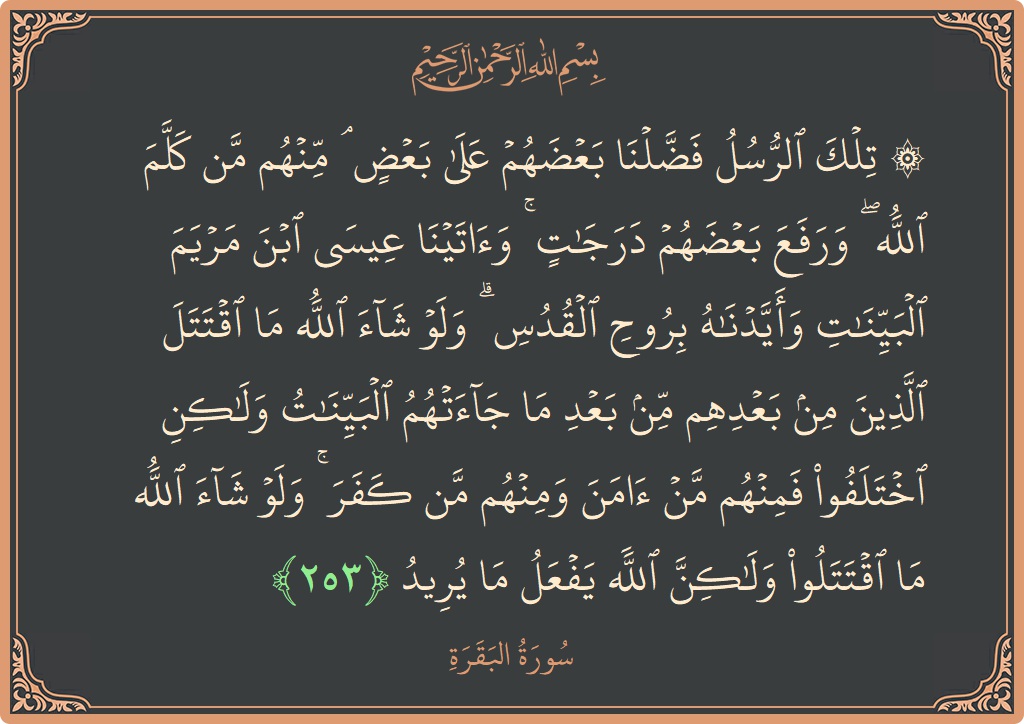 بِسْمِ اللَّهِ الرَّحْمَٰنِ الرَّحِيمِ
۞ تِلۡكَ ٱلرُّسُلُ فَضَّلۡنَا بَعۡضَهُمۡ عَلَىٰ بَعۡضٖۘ مِّنۡهُم مَّن كَلَّمَ
ٱللَّهُۖ وَرَفَعَ بَعۡضَهُمۡ دَرَجَٰتٖۚ وَءَاتَيۡنَا عِيسَى ٱبۡنَ مَرۡيَمَ
ٱلۡبَيِّنَٰتِ وَأَيَّدۡنَٰهُ بِرُوحِ ٱلۡقُدُسِۗ وَلَوۡ شَآءَ ٱللَّهُ مَا ٱقۡتَتَلَ
ٱلَّذِينَ مِنۢ بَعۡدِهِم مِّنۢ بَعۡدِ مَا جَآءَتۡهُمُ ٱلۡبَيِّنَٰتُ وَلَٰكِنِ
ٱخۡتَلَفُواْ فَمِنۡهُم مَّنۡ ءَامَنَ وَمِنۡهُم مَّن كَفَرَۚ وَلَوۡ شَآءَ ٱللَّهُ
مَا ٱقۡتَتَلُواْ وَلَٰكِنَّ ٱللَّهَ يَفۡعَلُ مَا يُرِيدُ ﴿٢٥٣﴾
سُورَةُ البَقَرَةِ